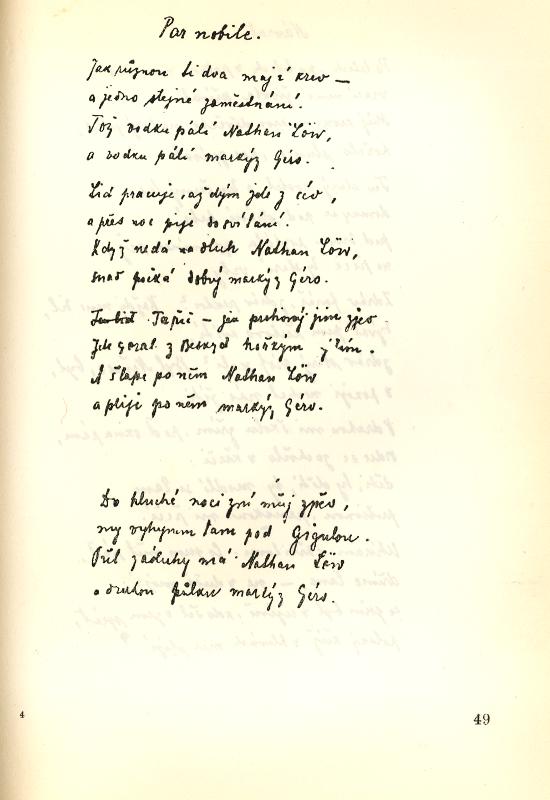 Par nobile.
Jak různou ti dva mají krev —
a jedno stejné zaměstnání.
Tož vodku pálí Nathan Löw,
a vodku pálí markýz Géro.
Lid pracuje, až dým jde z cév,
a přes noc pije do svítání.
Když nedá na dluh Nathan Löw,
snad počká dobrý markýz Géro.
Tak jen prchavý jim zjev
Jde goral z Beskyd hořkým
A šlape po něm Nathan Löw
a plije po něm markýz Géro.
Do hluché noci zní můj zpěv,
my vyhynem tam pod Gigulou.
Půl zásluhy má Nathan Löw
a druhou půlku markýz Géro.
4
49